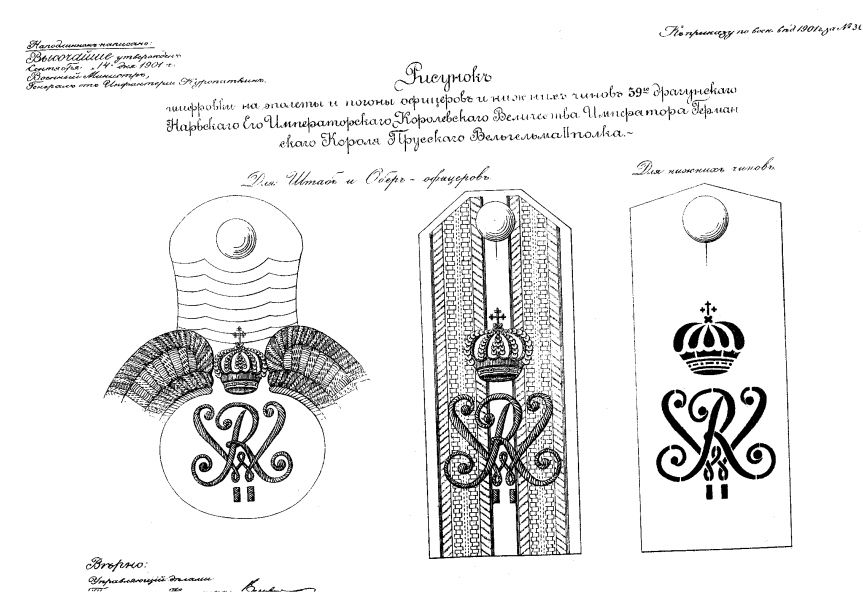 На подлинномъ написано:
Высочайше утверждёнъ
Сентября „14“ дня 1901 г.
Военный Министръ,
Генералъ отъ Инфантеріи Куропаткинъ.
Къ приказу по воен. вѣд. 1901 г. за №
Рисунокъ
шифровки на эполеты и погоны офицеровъ и нижнихъ чиновъ 39го драгунскаго
Нарвскаго Его Императорскаго Королевскаго Величества Императора Герман
скаго Короля Прусскаго Вельгельма II полка.~
Для: Штабъ и Оберъ-офицеровъ
Для нижнихъ чиновъ.
WR
II
WR
II
WR
II
Вѣрно:
Управляющій дѣлами